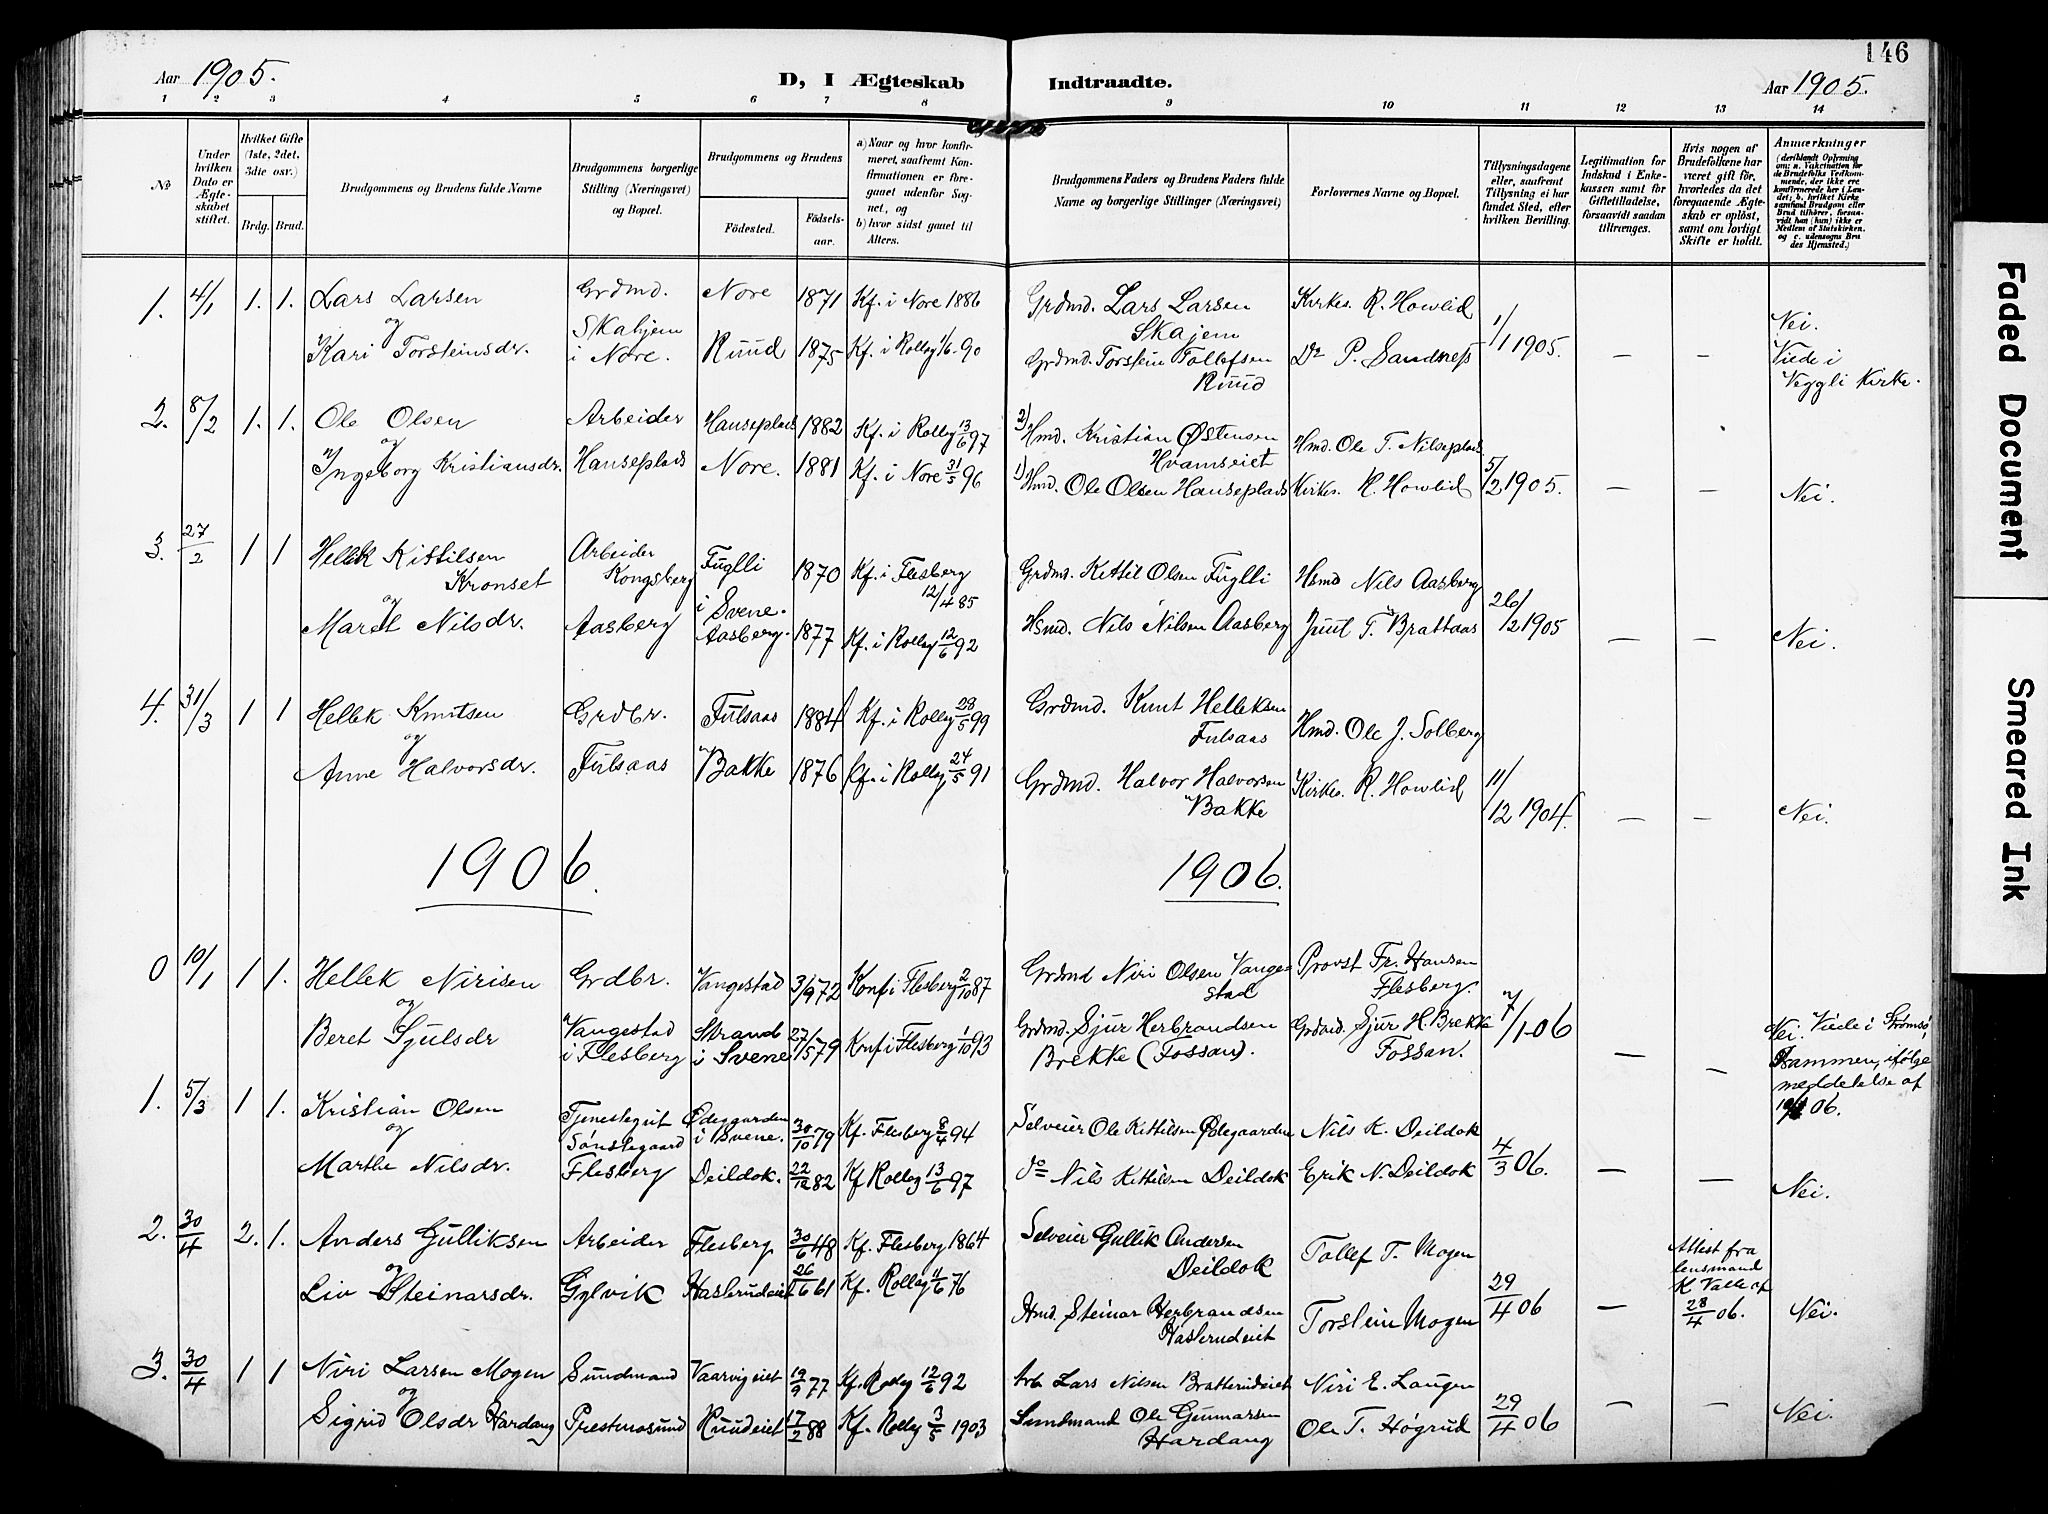 146
Aar 1905.
D, I Ægteskab Indtraadte.
Aar 1905.
1 2 3 4 5 6 7 8 9 10 11 12 13 14
No
Under hvilken Dato er Ægteskabet stiftet.
Hvilket Gifte (1ste, 2det, 3die osv.)
Brdg. Brud.
Brudgommens og Brudens fulde Navne
Brudgommens borgerlige Stilling (Næringsvei) og Bopæl.
Brudgommens og Brudens
Födested.
Födselsaar.
a) Naar og hvor konfirmeret, saafremt Konfirmationen er foregaaet udenför Sognet, og
b) hvor sidst gaaet til Alters.
Brudgommens Faders og Brudens Faders fulde Navne og borgerlige Stillinger (Næringsvei)
Forlovernes Navne og Bopæl.
Tillysningsdagene eller, saafremt Tillysning ei har fundet Sted, efter hvilken Bevilling.
Legitimation for Indskud i Enkekassen samt för Giftetilladelse, forsaavidt saadan tiltrænges.
Hvis nogen af Brudefolkene har været gift för, hvorledes da det foregaaende Ægteskab er oplöst, samt om lovligt Skifte er holdt.
Anmærkninger
(deriblandt Oplysning om: a. Vakcination for Brudefolks Vedkommende, der ikke ere konfirmerede her i Landet; b. hvilket Kirkesamfund Brudgom eller Brud tilhörer, forsaavidt han (hun) ikke er Medlem af Statskirken, og c. udensogns Brudes Hjemsted.)
1. 4/1 1. 1. Lars Larsen Grdmd. Nore 1871 Kf. i Nore 1886 Grdmd. Lars Larsen Kirkes. R. Howlid
og Skahjem Skajem 1/1 1905. Nei.
Kari Torsteinsdr. i Nore. Ruud 1875 Kf. i Rollag 1/6 90 Grdmd. Torstein Tollefsen Do P. Sandness — — Viede i
Ruud Veggli Kirke.
2. 8/2 1. 1. Ole Olsen Arbeider Hanseplads 1882 Kf. i Rollag 13/6 97 2) Hmd. Kristian Østensen Hmd. Ole T. Nilseplads
og Hvamseiet
Ingeborg Kristiansdr. Hanseplads Nore. 1881 Kf. i Nore 31/5 96 1) Hmd. Ole Olsen Hanseplads Kirkes. R. Howlid 5/2 1905. — — Nei.
3. 27/2 1 1 Hellek Kittilsen Arbeider Fuglli 1870 Kf. i Flesberg Grdmd. Kettil Olsen Fuglli Hsmd Nils Aasberg
Kronset Kongsberg i Svene. 12/4 85
og
Marit Nilsdr. Aasberg Aasberg. 1877 Kf. i Rollag 12/6 92 Hsmd. Nils Nilsen Aasberg Juul T. Brattaas 26/2 1905 — — Nei.
4. 31/3 1 1 Hellek Knutsen Grdbr. Fulsaas 1884 Kf. i Rollag 28/5 99 Grdmd. Knut Helleksen Hmd. Ole J. Solberg
og Fulsaas
Anne Halvorsdr. Fulsaas Bakke 1876 Kf. i Rollag 24/5 91 Grdmd. Halvor Halvorsen Kirkes. R. Howlid 11/12 1904. — — Nei.
Bakke
1906. 1906.
0 10/1 1 1. Hellek Nirisen Grdbr. Vangestad 3/9 72 Konf i Flesberg 2/10 87 Grdmd Niri Olsen Vangestad Provst Fr. Hansen
og Flesberg.
Beret Sjulsdr Vangestad Strand 27/5 79 Konf i Flesberg 1/10 93 Grdmd. Sjur Herbrandsen Grdmd. Sjur H. Brekke 7/1-06 Nei. Viede i Strømsø
i Flesberg i Svene Brekke (Fossan). Fossan. — — Drammen, ifölge
meddelelse af
06.
1. 5/3 1 1. Kristian Olsen Tjenestegut Ødeggarden 30/10 79 Kf. Flesberg 8/4 94 Selveier Ole Kittilsen Ødegaarden Nils K. Deildok
og Sønstegaard i Svene. 4/3 06.
Marthe Nilsdr. Flesberg Deildok. 22/12 82 Kf Rollag 13/6 97 do Nils Kittilsen Deildok Erik N. Deildok — — Nei.
2. 30/4 2. 1. Anders Gulliksen Arbeider Flesberg 30/6 48 Kf. Flesberg 1864 Selveier Gullik Andersen Tollef T. Mogen Attest fra
og Deildok lensmand
Liv Steinarsdr. Gylvik Haslerudeiet 26/6 61 Kf. Rollag 11/6 76 29/4 06 — K Valle af
Hmd. Steinar Herbrandsen Torstein Mogen 28/4 06. Nei.
Haslerudeiet
3. 30/4 1 1 Niri Larsen Mogen Sundmand Vaarvigeiet 19/9 77 Kf. Rollag 12/6 92 Arb Lars Nilsen Bratterudeiet Niri E. Laugen
og 29/4 06 — — Nei.
Sigrid Olsdr Hardang Prestmosund Ruudeiet 17/2 88 Kf. Rollag 3/5 1903 Sundmand Ole Gunnarsen Ole T. Høgrud
Hardang
Faded Document
Smeared Ink